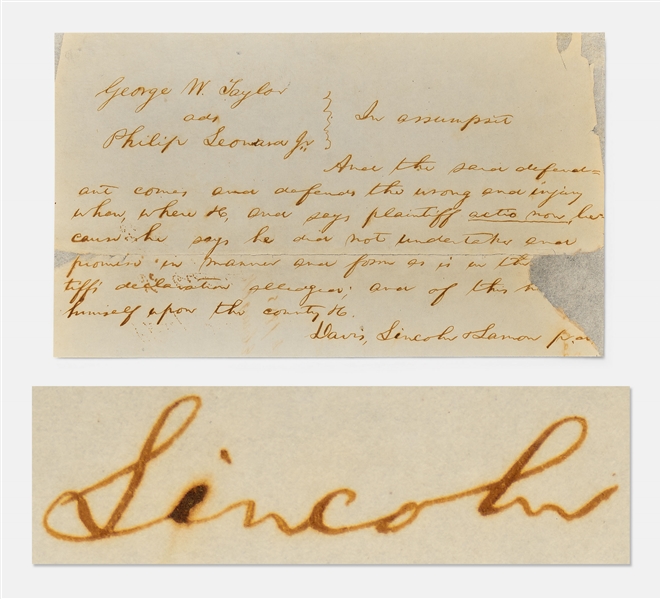 George W. Taylor
ads
Philip Leonard Jr.
In assumpsit
And the said defend=
ant comes and defends the wrong and injury
when, where &c, and says plaintiff actio non, be-
cause he says he did not undertake and
promise in manner and form as is in the
tiff's declaration alleged; and of this
himself upon the county &c.
Davis, Lincoln & Lamon p.
Lincoln